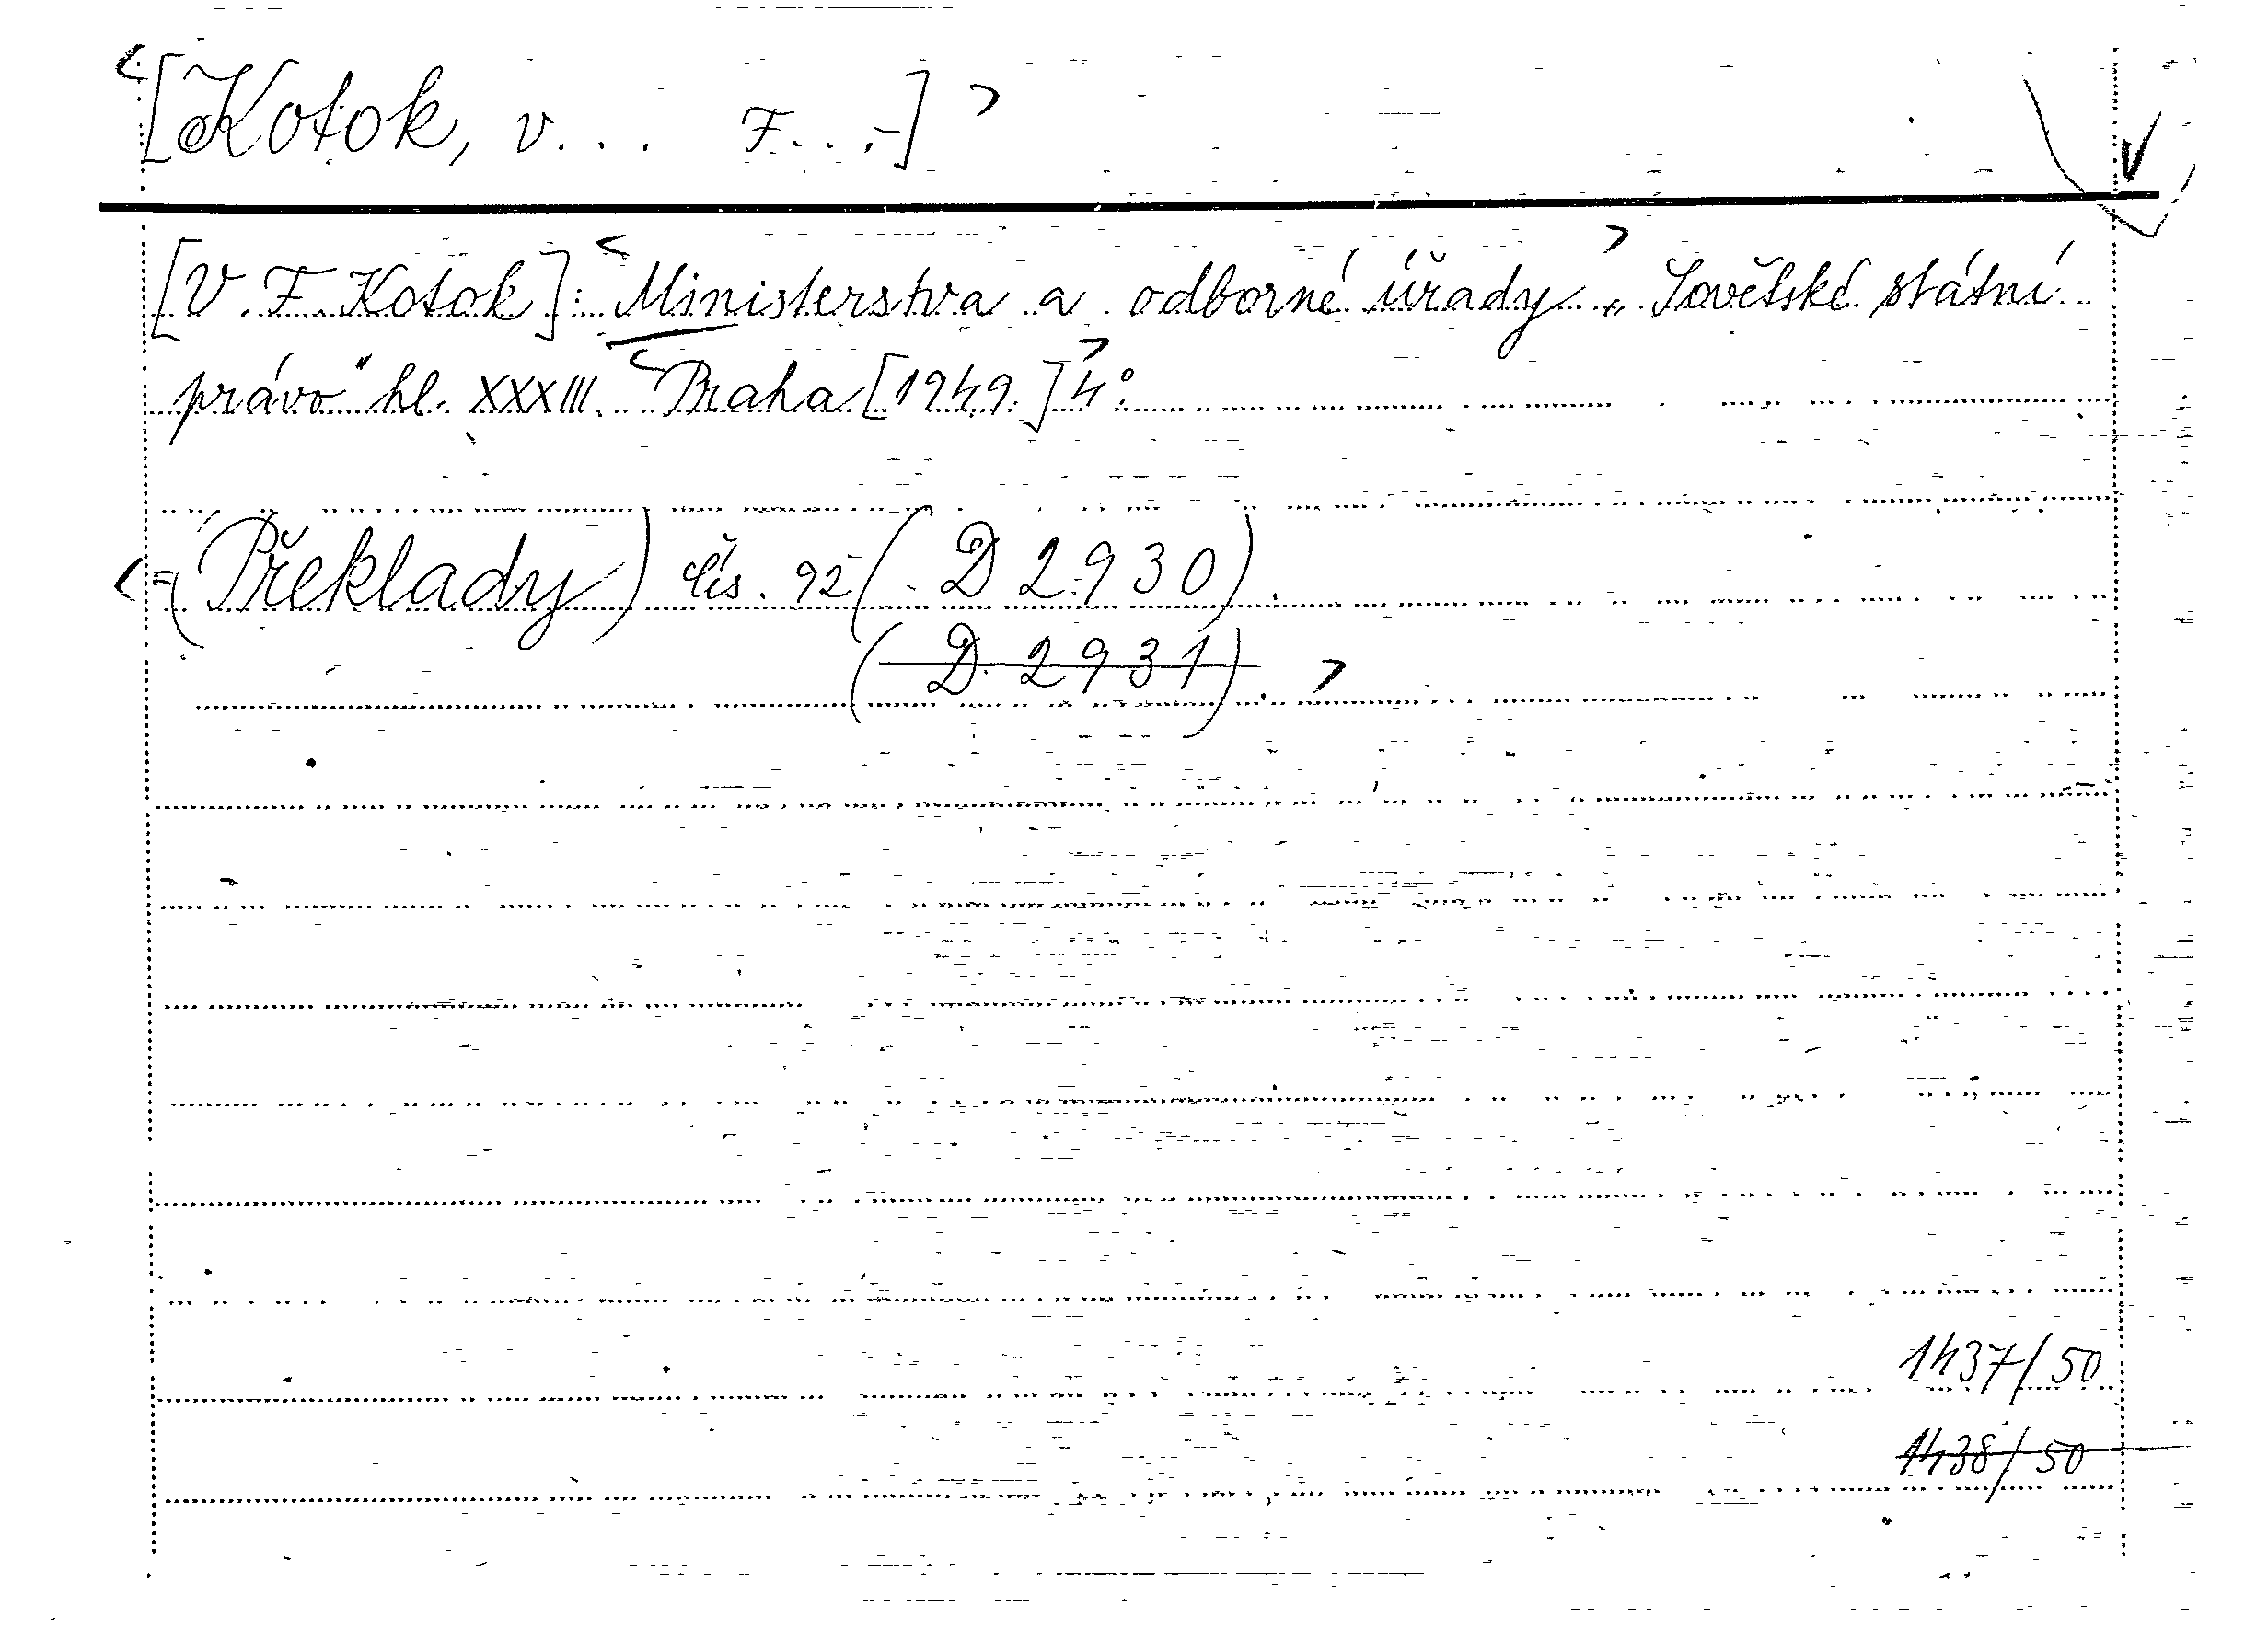 <[Kotok, V... F...,-]>
[V. F. Kotok]: <Ministerstva a odborné úřady> „Sovětské státní
právo" hl. XXXIII. <Praha [1949.]> 4°.
<=(Překlady) čís. 92 (D 2930).
(D 2931).>
1437/50
1438/50